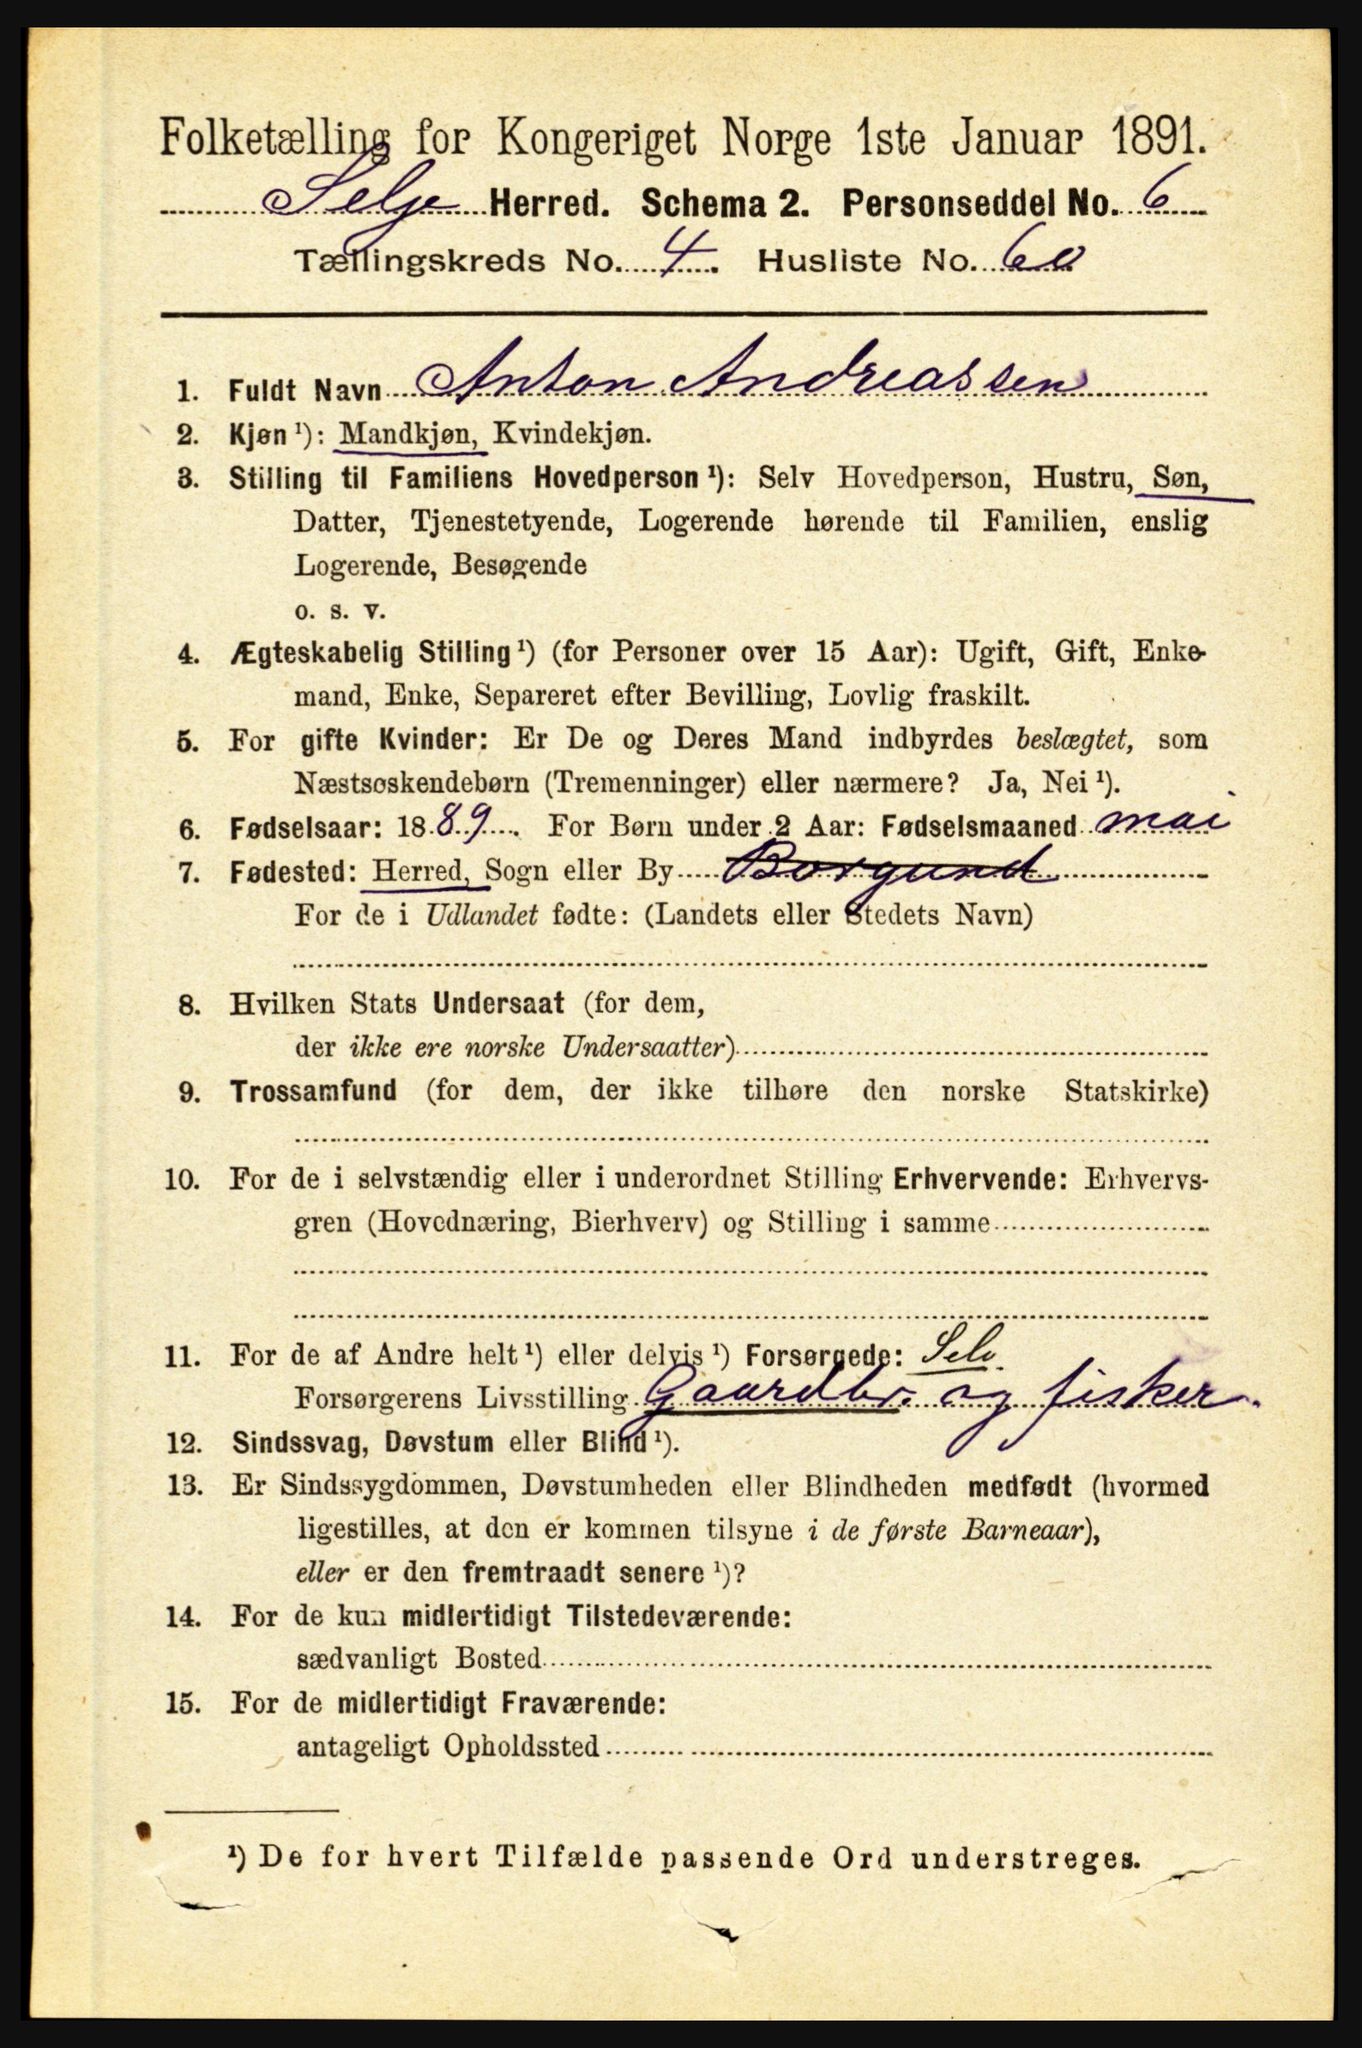 Folketælling for Kongeriget Norge 1ste Januar 1891.
Selje Herred. Schema 2. Personseddel No. 6
Tællingskreds No. 4. Husliste No. 60
1. Fuldt Navn Anton Andreassen
2. Kjøn ¹): Mandkjøn, Kvindekjøn.
3. Stilling til Familiens Hovedperson ¹): Selv Hovedperson, Hustru, Søn,
Datter, Tjenestetyende, Logerende hørende til Familien, enslig
Logerende, Besøgende
o. s. v.
4. Ægteskabelig Stilling ¹) (for Personer over 15 Aar): Ugift, Gift, Enke-
mand, Enke, Separeret efter Bevilling, Lovlig fraskilt.
5. For gifte Kvinder: Er De og Deres Mand indbyrdes beslægtet, som
Næstsøskendebørn (Tremenninger) eller nærmere? Ja, Nei ¹).
6. Fødselsaar: 1889. For Børn under 2 Aar: Fødselsmaaned mai
7. Fødested: Herred, Sogn eller By Borgund
For de i Udlandet fødte: (Landets eller Stedets Navn)
8. Hvilken Stats Undersaat (for dem,
der ikke ere norske Undersaatter)
9. Trossamfund (for dem, der ikke tilhøre den norske Statskirke)
10. For de i selvstændig eller i underordnet Stilling Erhvervende: Erhvervs-
gren (Hovednæring, Bierhverv) og Stilling i samme
11. For de af Andre helt ¹) eller delvis ¹) Forsørgede: Selv.
Forsørgerens Livsstilling Gaardbr. og fisker.
12. Sindssvag, Døvstum eller Blind ¹).
13. Er Sindssygdommen, Døvstumheden eller Blindheden medfødt (hvormed
ligestilles, at den er kommen tilsyne i de første Barneaar),
eller er den fremtraadt senere ¹)?
14. For de kun midlertidigt Tilstedeværende:
sædvanligt Bosted
15. For de midlertidigt Fraværende:
antageligt Opholdssted
¹) De for hvert Tilfælde passende Ord understreges.